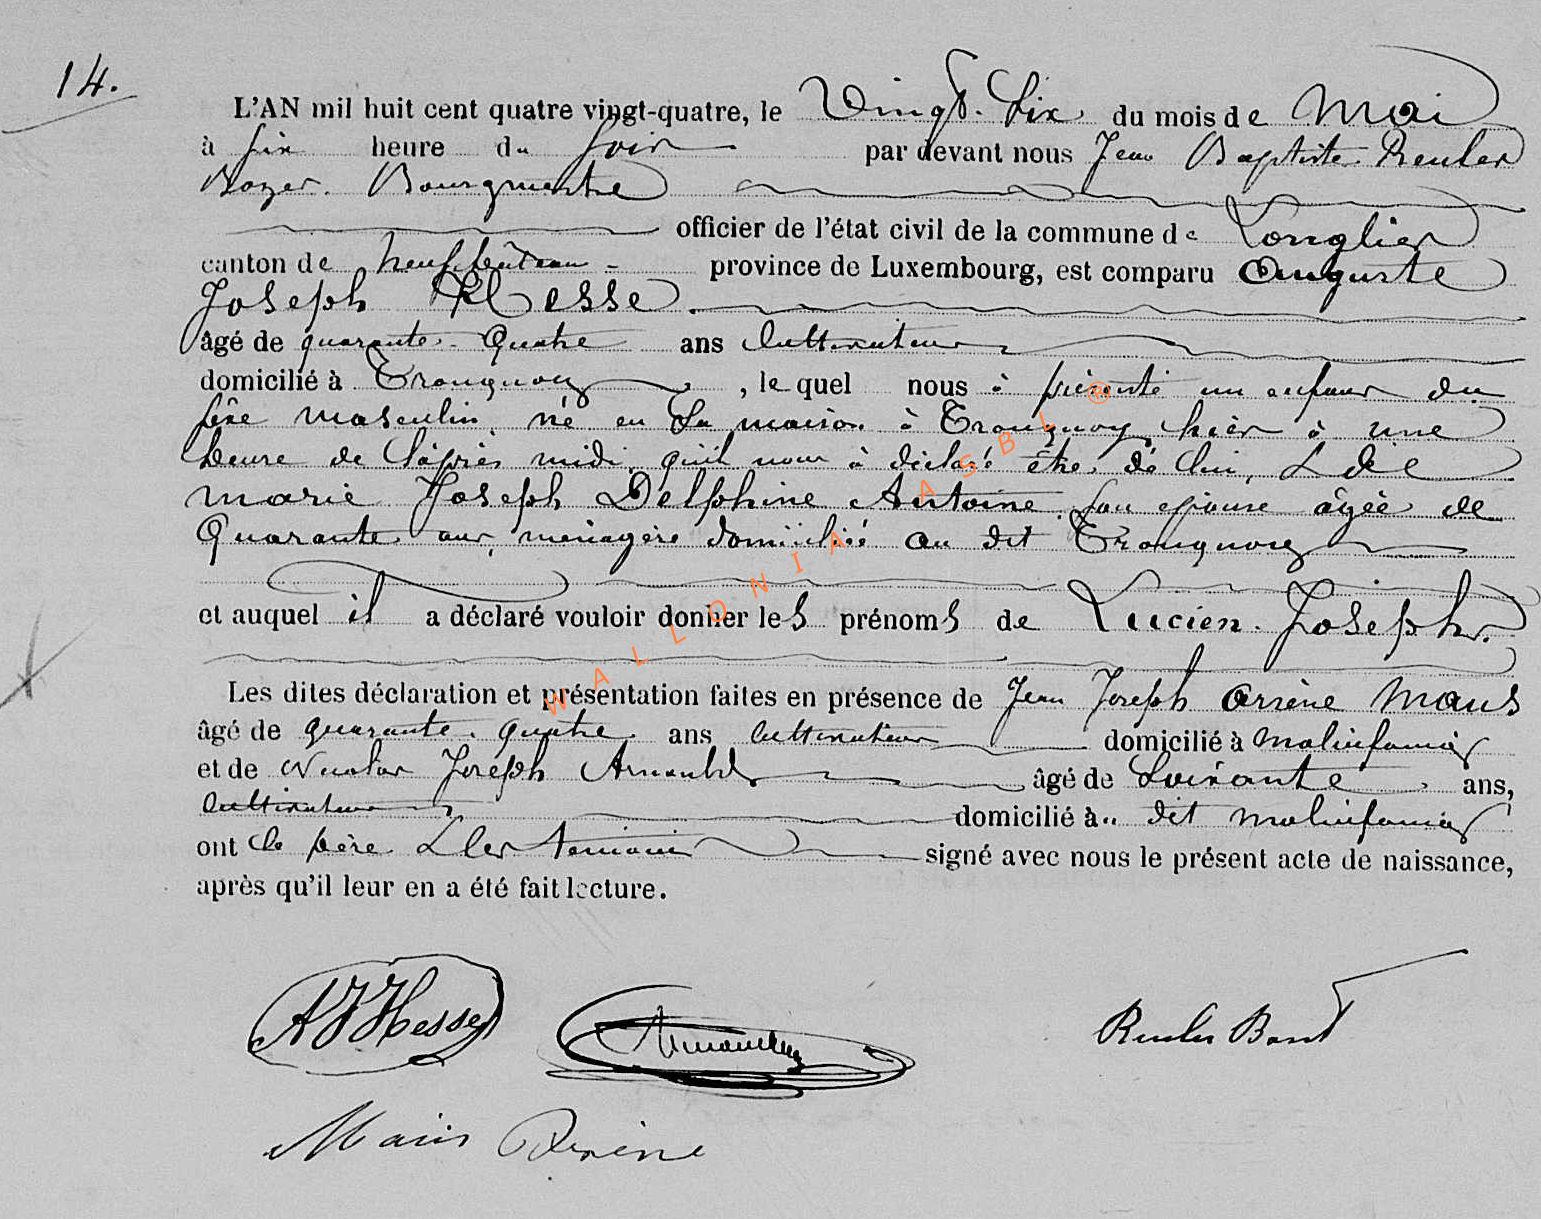 14.
L'AN mil huit cent quatre vingt-quatre, le Vingt-Six du mois de Mai
à six heure du soir par devant nous Jean Baptiste Reuler
Bozer. Bourgmestre
officier de l'état civil de la commune de Longlier
canton de Neufchâteau province de Luxembourg, est comparu Auguste
Joseph Hesse
âgé de quarante-quatre ans Cultivateur
domicilié à Tronquoy, lequel nous à présenté un enfant du
sèxe masculin, né en sa maison à Tronquoy, hier à une
heure de l'après midi, qu'il nous à déclaré être de lui, & de
Marie Joseph Delphine Antoine, son épouse âgée de
Quarante ans, ménagère domiciliée au dit Tronquoy
et auquel il a déclaré vouloir donner les prénoms de Lucien Joseph.
Les dites déclaration et présentation faites en présence de Jean Joseph Arsène Maus
âgé de quarante-quatre ans cultivateur domicilié à Molinfaing
et de Nicolas Joseph Arnould âgé de Soixante ans,
Cultivateur domicilié à dit Molinfaing
ont le père & les témoins signé avec nous le présent acte de naissance,
après qu'il leur en a été fait lecture.
AJHesse
Arnould
Maus Arsène
WALLONIA ASBL ®